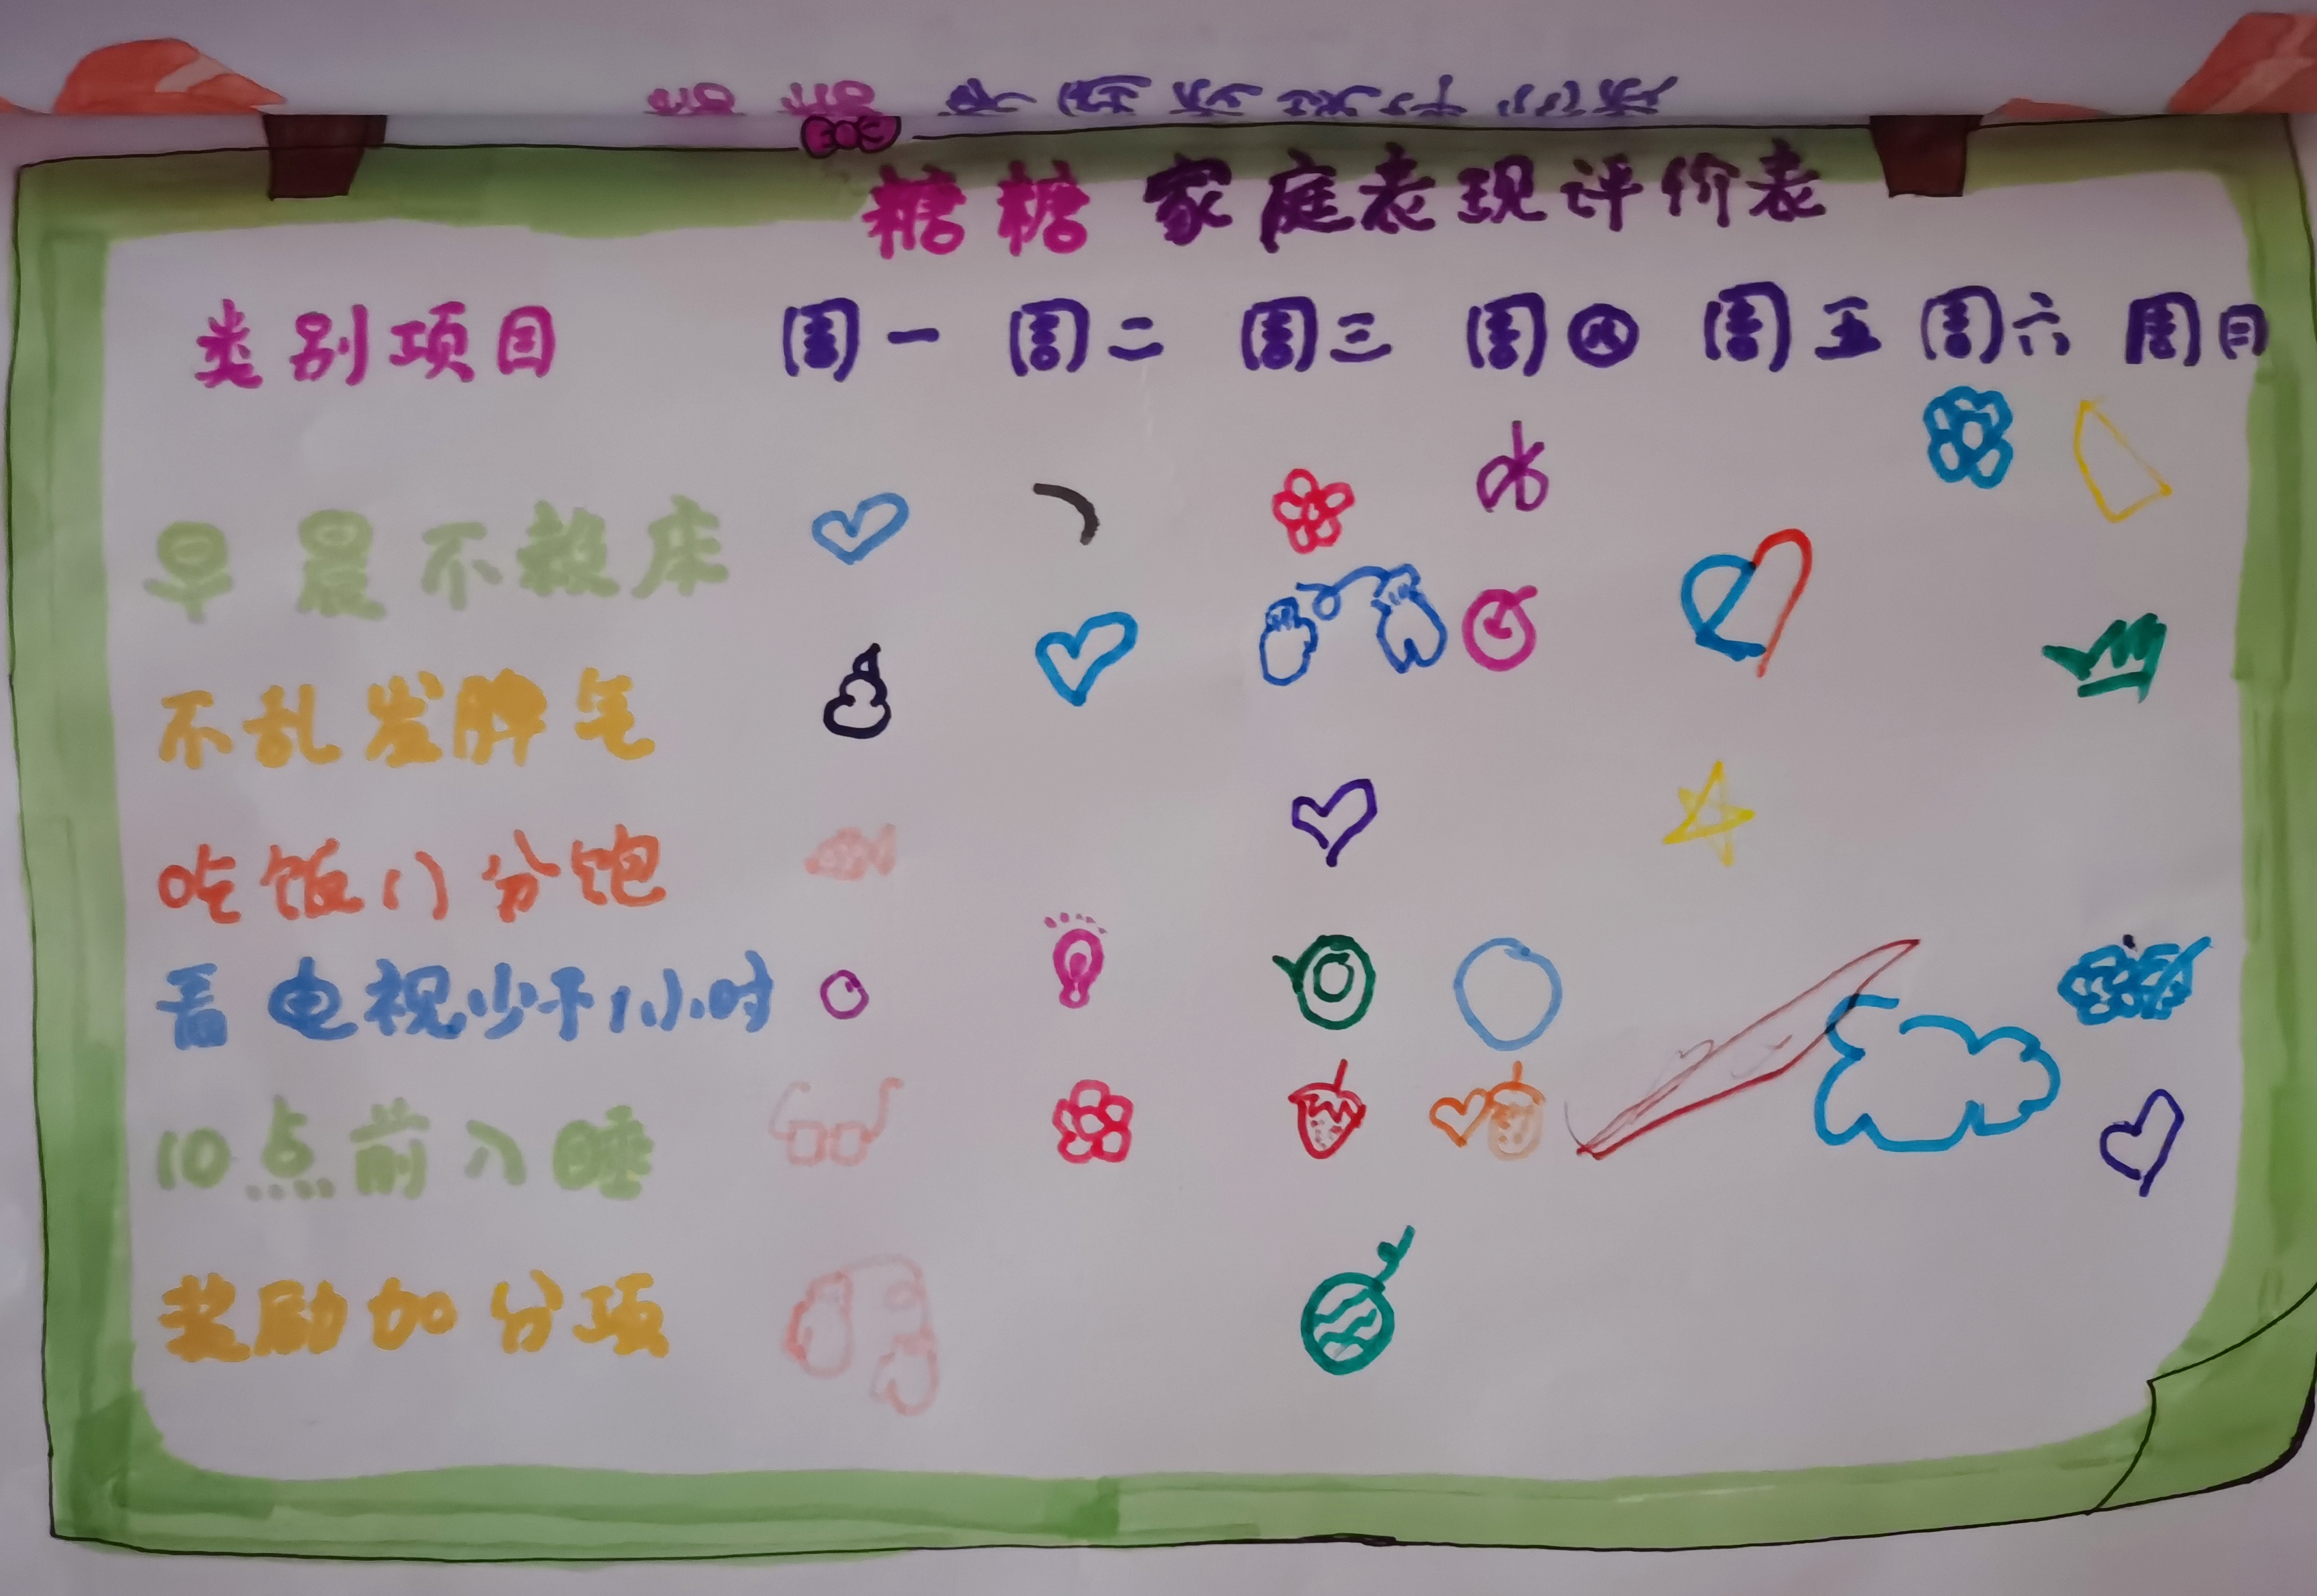 糖糖 家庭表现评价表
类别项目 周一 周二 周三 周四 周五 周六 周日
早晨不赖床
不乱发脾气
吃饭八分饱
看电视少于1小时
10点前入睡
奖励加分项